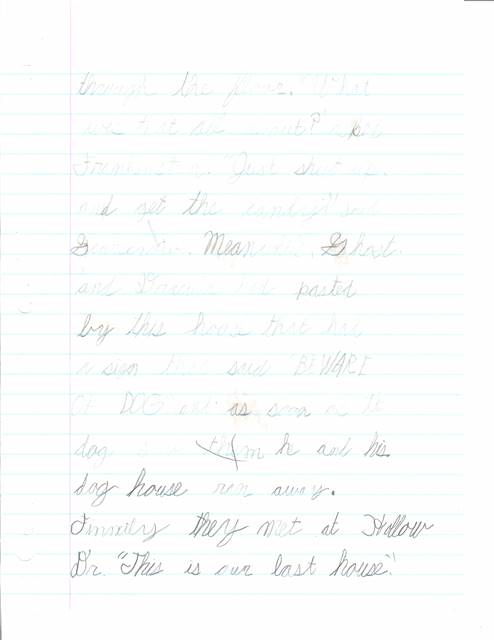 through the floor. "What
was that all about?" asked
Frankenst n. "Just shut up.
and get the candy!" said
Meanwhile, Ghost.
and Dracula had pasted
by this house that had
a sign that said "BEWARE
OF DOG" and as soon as the
dog saw them he and his
dog house ran away.
Finnally they met at Hollow
Dr. "This is our last house"!